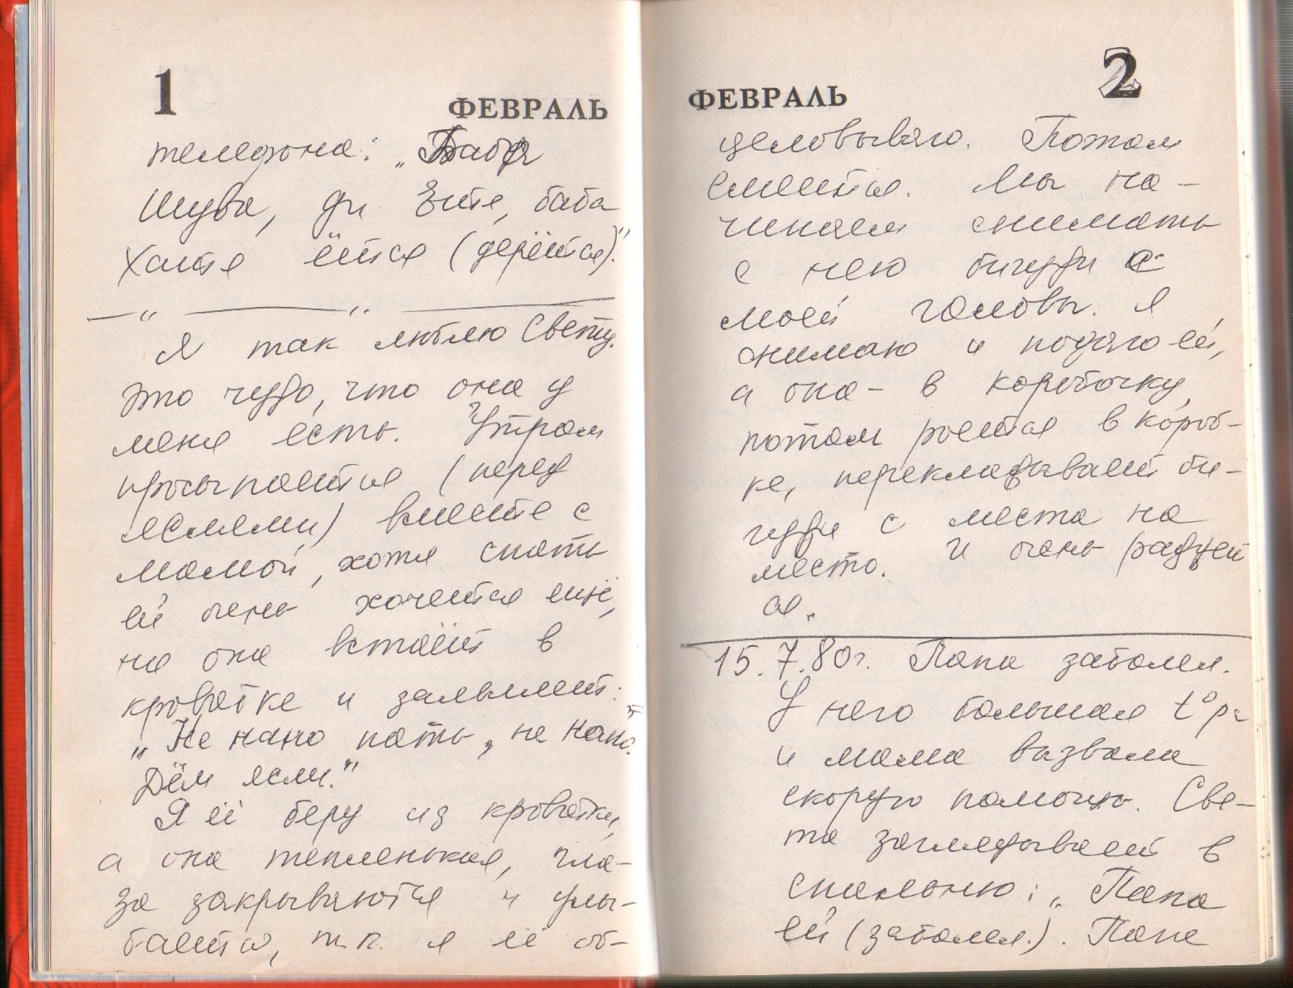 1
ФЕВРАЛЬ
телефона: „Баба
Шува, ди Вите, баба
Хатя ётся (дерётся)."
— „ — „ —
Я так люблю Свету.
Это чудо, что она у
меня есть. Утром
просыпается (перед
яслями) вместе с
мамой, хотя спать
ей очень хочется ещё,
но она встаёт в
кроватке и заявляет:
„Не нано пать, не нано.
Дём ясли."
Я её беру из кроватки,
а она тепленькая, гла-
за закрываются и улы-
бается, т.к. я её об-
ФЕВРАЛЬ
2
целовываю. Потом
смеётся. Мы на-
чинаем снимать
с нею бигуди с
моей головы. Я
снимаю и подаю ей,
а она - в коробочку,
потом роется в короб-
ке, перекладывает би-
гуди с места на
место. И очень радует
ся.
15.7.80г. Папа заболел.
У него большая t°ра
и мама вызвала
скорую помощь. Све-
та заглядывает в
спальню: „Папа
ей (заболел.). Папе